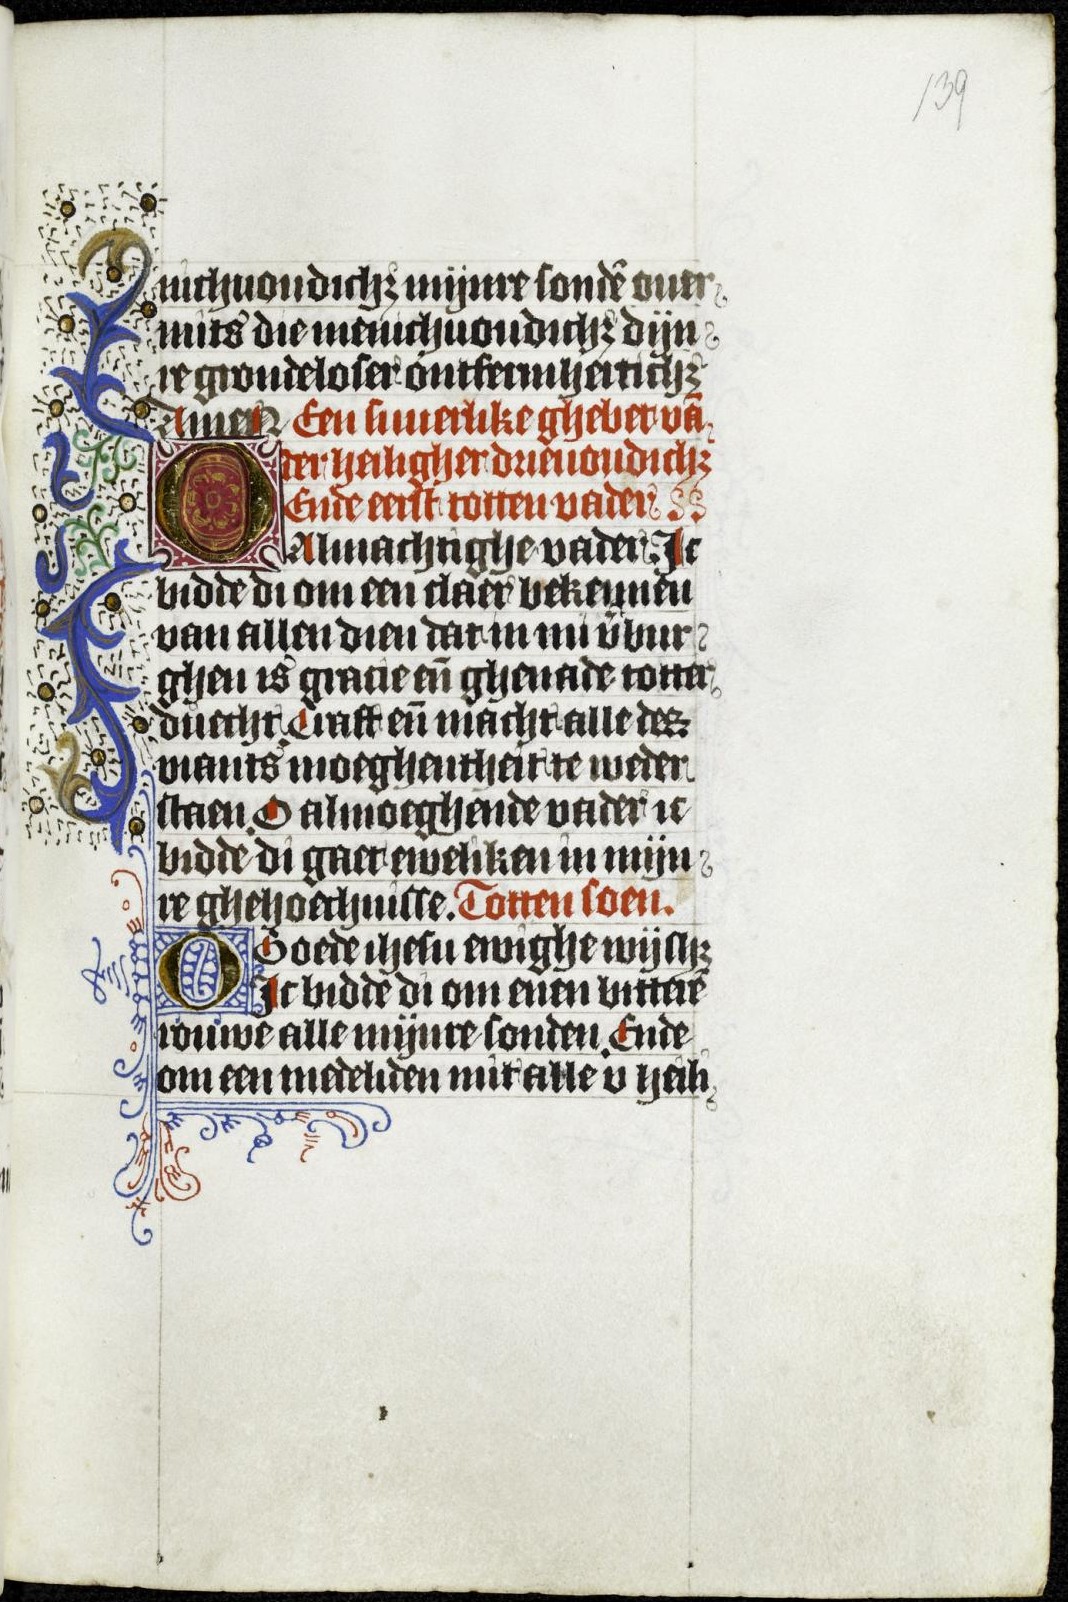 139
nichuondichꝫ mijnre sondē ouer
mits die menichuoudichꝫ dijn
re grondeloser ontfermherticħꝫ
Amen Een suuerlike ghebet vā
der heiligher drieuoudichꝫ
Ende eerst totten vader
O Almachtighe vader. Ic
bidde di om een claer bekennen
van allen dien dat in mi v̄bur
ghen is gracie eñ ghenade totter
duecht. Craft eñ macht alle des
viants moeghentheit te weder
staen. O almoeghende vader ic
bidde di gaet eweliken in mijn
re ghehoechnisse. Totten soen.
O Goede ihesu ewighe wijsꝫ
Ic bidde di om enen bitterē
rouwe alle mijnre sonden. Ende
om een medeliden mit alle v heili